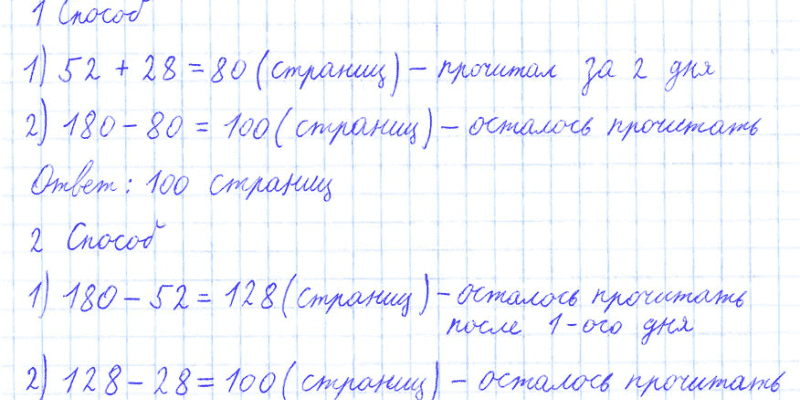 1 Способ
1) 52 + 28 = 80 (страниц) – прочитал за 2 дня
2) 180 – 80 = 100 (страниц) – осталось прочитать
Ответ: 100 страниц
2 Способ
1) 180 – 52 = 128 (страниц) – осталось прочитать
после 1-ого дня
2) 128 – 28 = 100 (страниц) – осталось прочитать